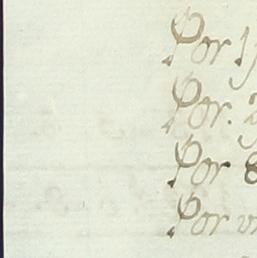 Por 1
Por. 2
Por 8
Por